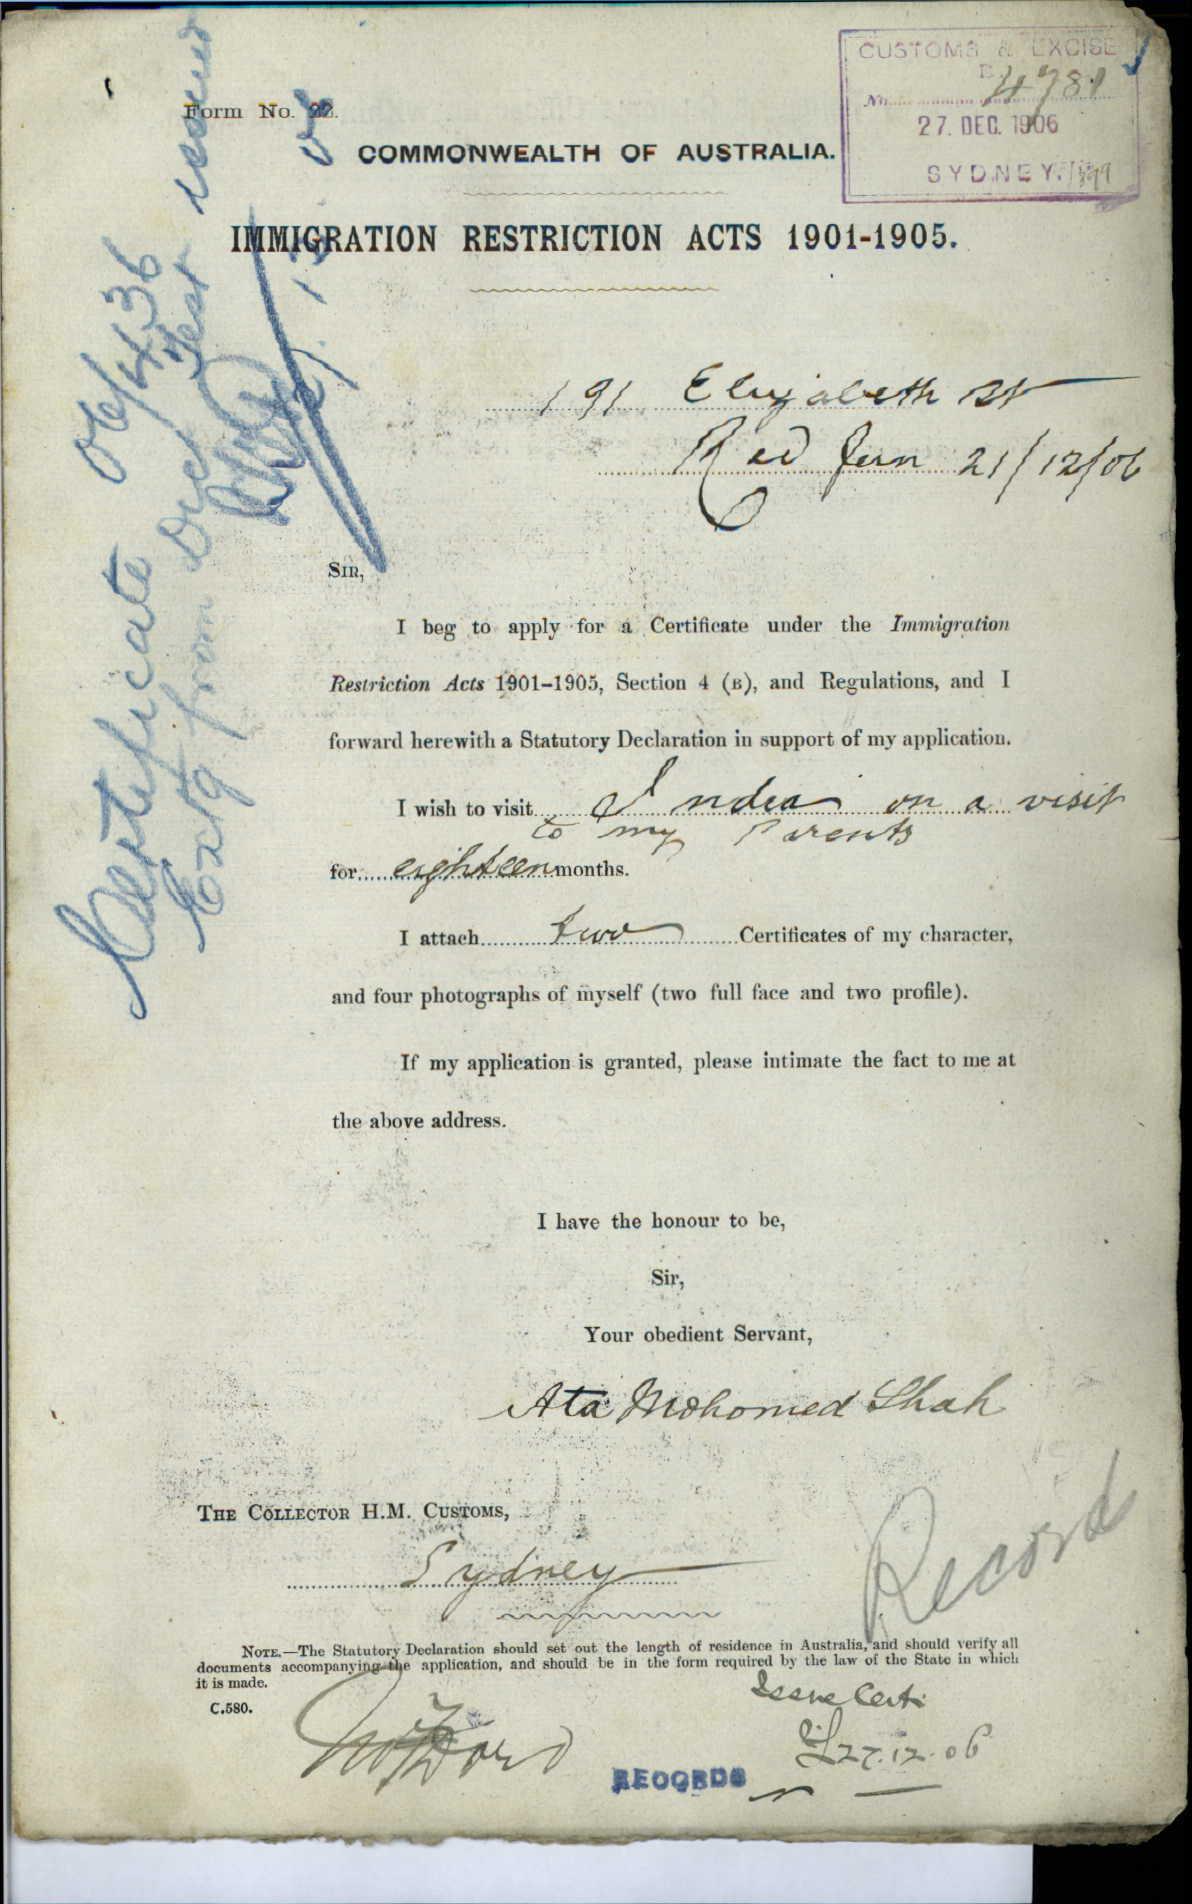 CUSTOMS & EXCISE
No. 4781
27. DEC. 1906
SYDNEY.
Form No. 22.
COMMONWEALTH OF AUSTRALIA.
IMMIGRATION RESTRICTION ACTS 1901-1905.
Certificate 06/436
Exg from Dic Test issued
191 Elizabeth St
Red fern 21/12/06
SIR,
I beg to apply for a Certificate under the Immigration
Restriction Acts 1901-1905, Section 4 (B), and Regulations, and I
forward herewith a Statutory Declaration in support of my application.
I wish to visit India on a visit
to my Parents
for eighteen months.
I attach two Certificates of my character,
and four photographs of myself (two full face and two profile).
If my application is granted, please intimate the fact to me at
the above address.
I have the honour to be,
Sir,
Your obedient Servant,
Ata Mohomed Shah
THE COLLECTOR H.M. CUSTOMS,
Sydney
Record
NOTE.—The Statutory Declaration should set out the length of residence in Australia, and should verify all
documents accompanying the application, and should be in the form required by the law of the State in which
it is made.
C.580.
Issue Certi
27.12.06
RECORDS